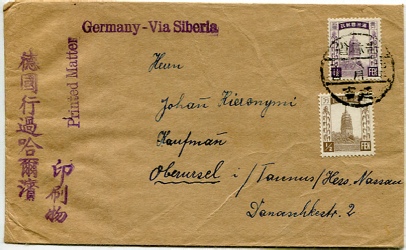 Germany-Via Siberia
Printed Matter
德國行過哈爾濱
印刷物
Herrn
Johań Hieronymi
Kaufmań
Oberursel i/Taunus/Hess. Nassau
Danaschkestr. 2
FEN
½ FEN